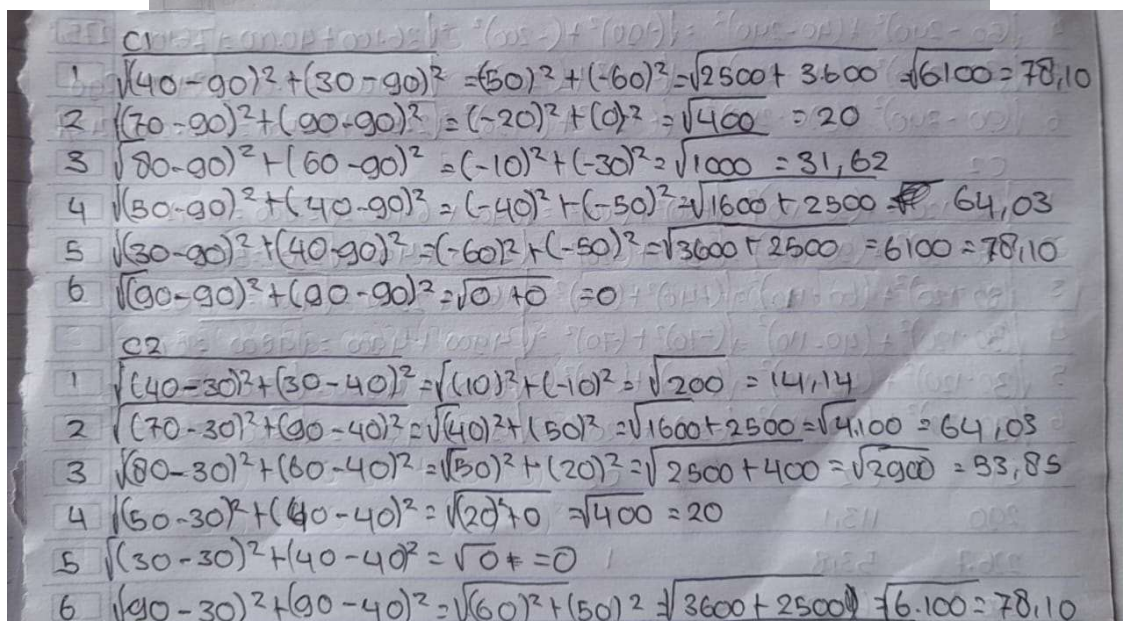 C1
1 √(40-90)²+(30-90)² =(-50)²+(-60)²=√2500+3.600 =√6100=78,10
2 √(70-90)²+(90-90)² =(-20)²+(0)² =√400 =20
3 √80-90)²+(60-90)² =(-10)²+(-30)²=√1000 =31,62
4 √(50-90)²+(40-90)²=(-40)²+(-50)²=√1600+2500 = 64,03
5 √(30-90)²+(40-90)² =(-60)²+(-50)²=√3600+2500 =6100=78,10
6 √(90-90)²+(90-90)²=√0+0 =0
C2
1 √(40-30)²+(30-40)²=√(10)²+(-10)²=√200 =14,14
2 √(70-30)²+(90-40)²=√(40)²+(50)² =√1600+2500=√4.100 =64,03
3 √(80-30)²+(60-40)²=√(50)²+(20)²=√2500+400=√2900 =53,85
4 √(50-30)²+(40-40)²=√(20)²+0 =√400=20
5 √(30-30)²+(40-40)²=√0+=0
6 √(90-30)²+(90-40)²=√(60)²+(50)²=√3600+2500 =√6.100=78,10